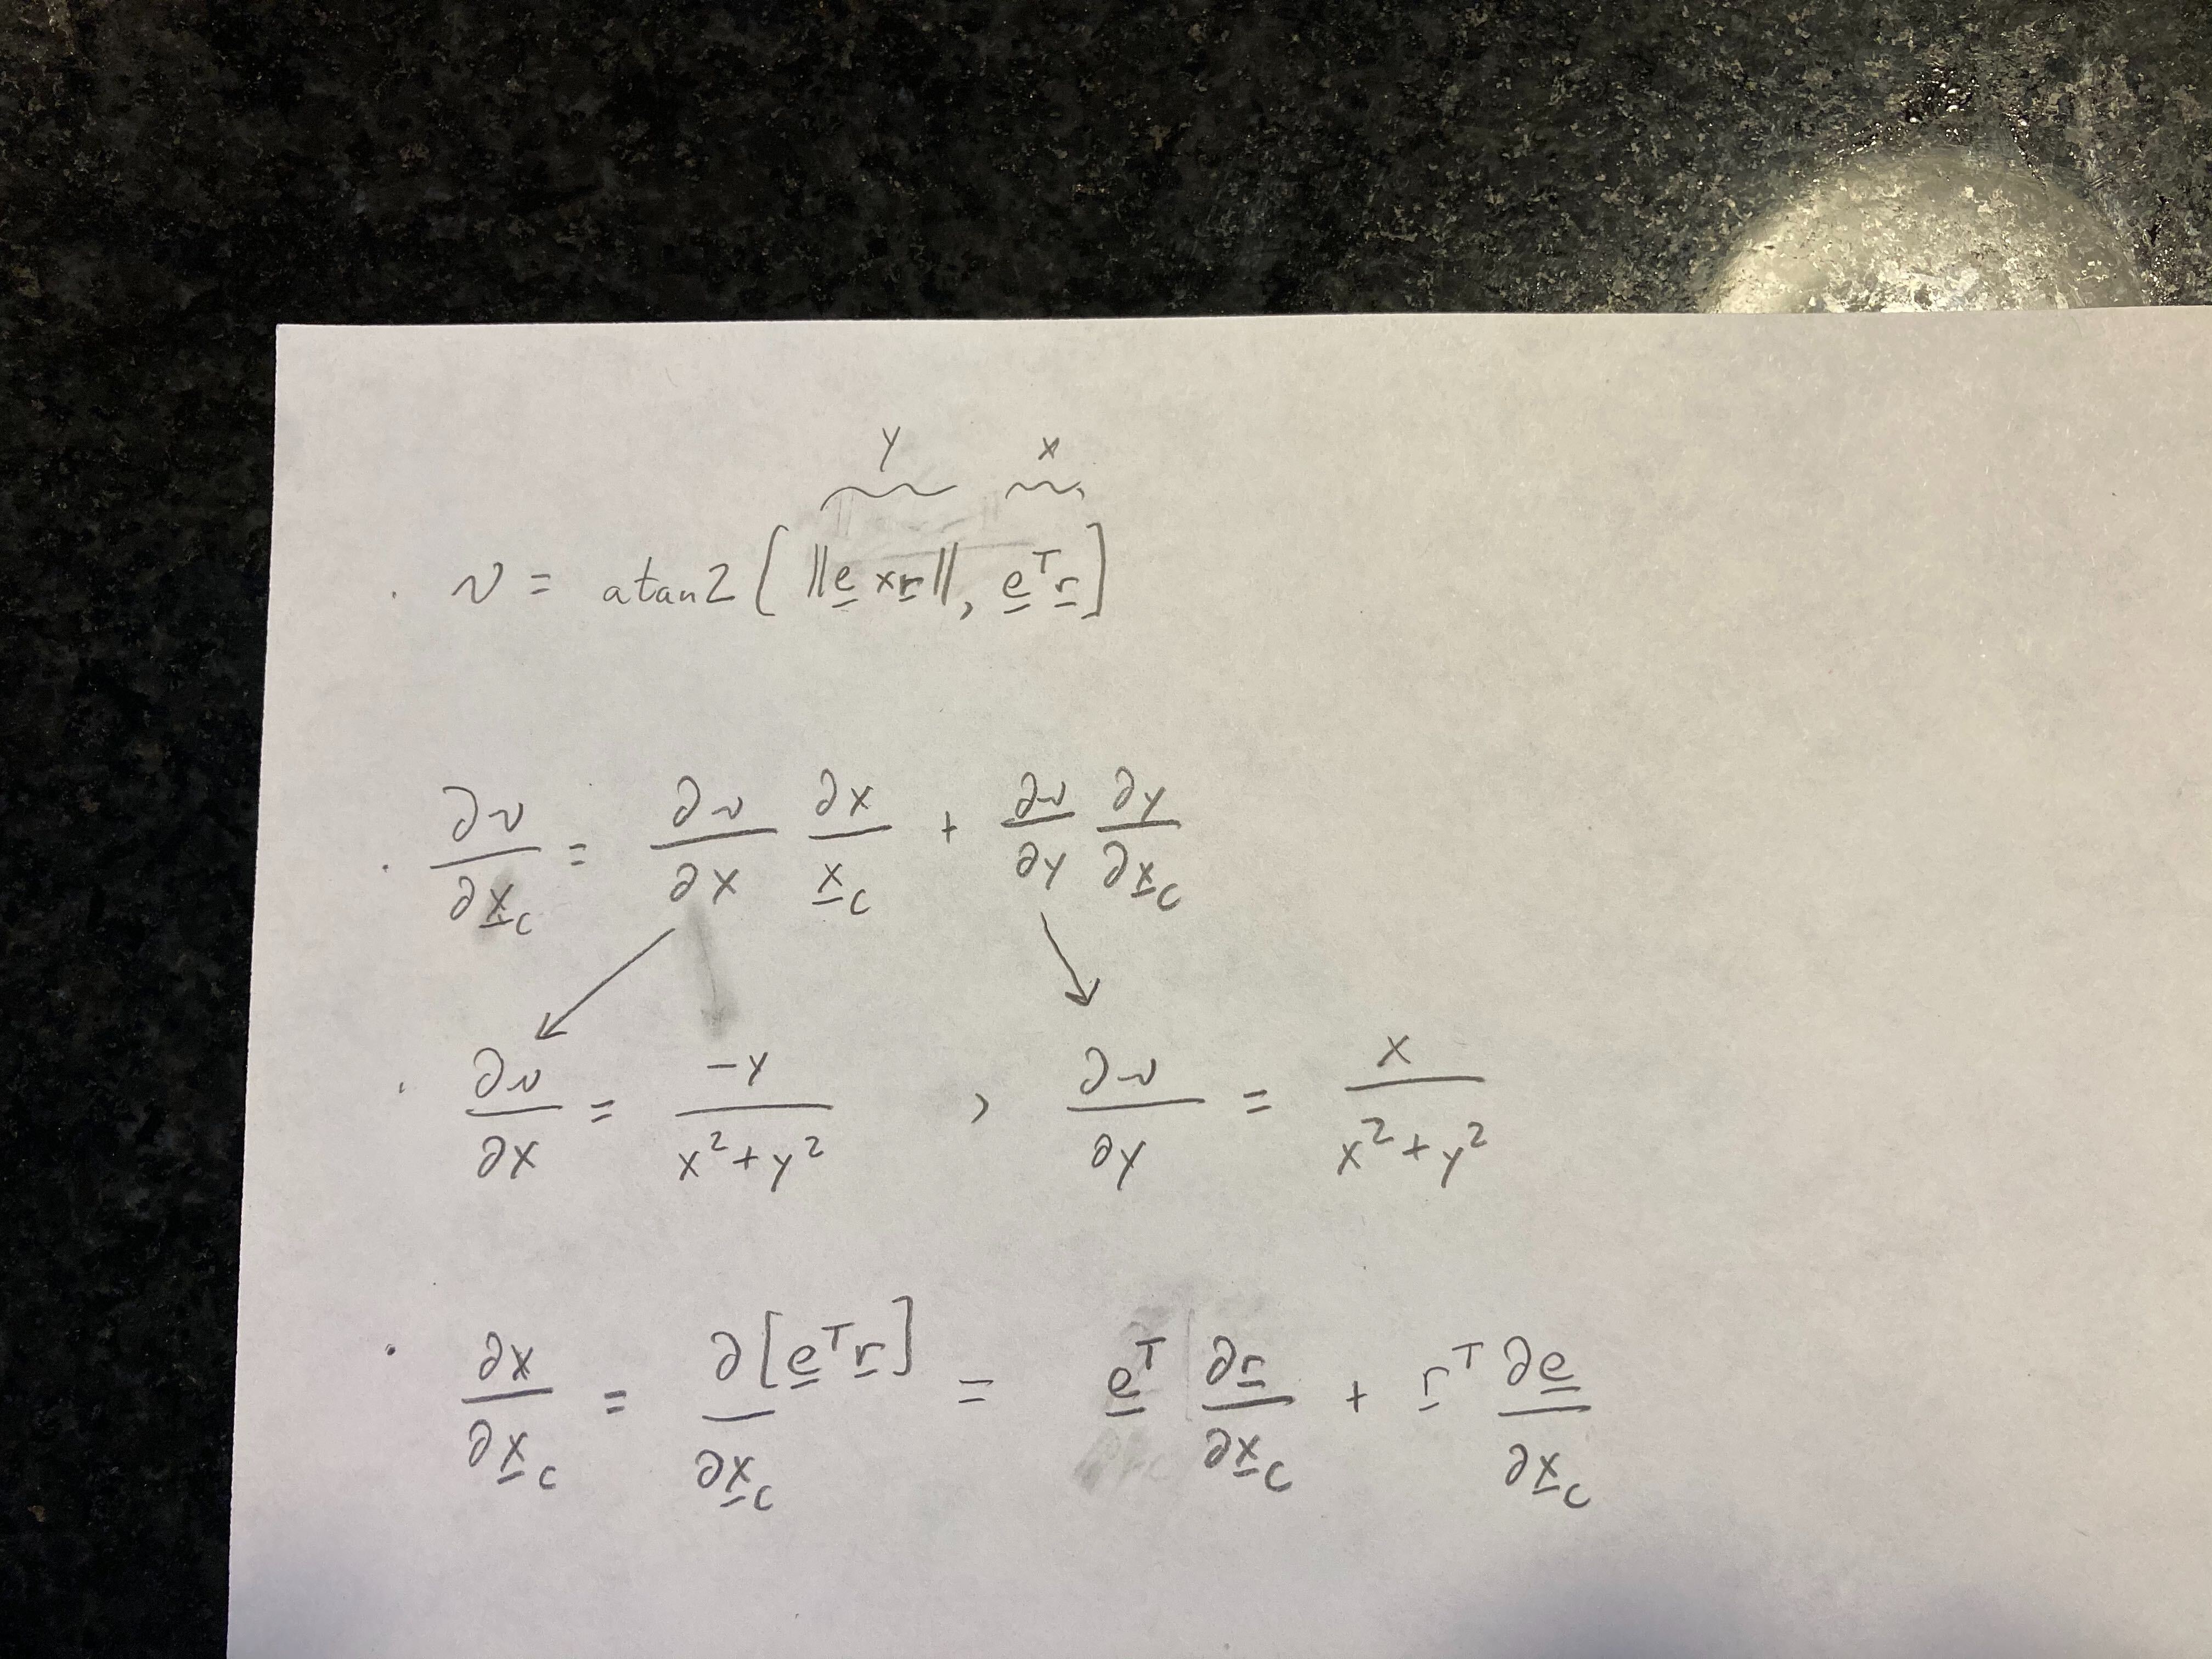 y x
ν = atan2 [ ||e̲ x r̲||, e̲ᵀ r̲ ]
∂ν/∂x̲_c = ∂ν/∂x ∂x/x̲_c + ∂ν/∂y ∂y/∂x̲_c
∂ν/∂x = -y/(x²+y²) , ∂ν/∂y = x/(x²+y²)
∂x/∂x̲_c = ∂[e̲ᵀ r̲]/∂x̲_c = e̲ᵀ ∂r̲/∂x̲_c + r̲ᵀ ∂e̲/∂x̲_c